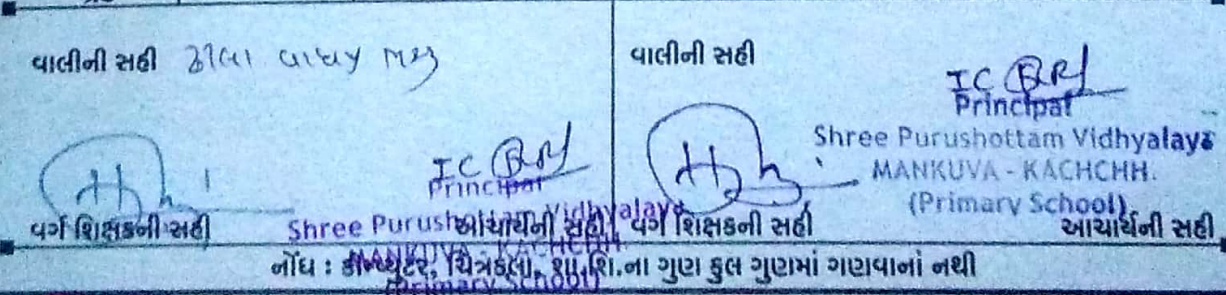 વાલીની સહી
વર્ગ શિક્ષકની સહી
Principal
Shree Purushottam Vidhyalaya
MANKUVA - KACHCHH
(Primary School)
આચાર્યની સહી
વાલીની સહી
વર્ગ શિક્ષકની સહી
Principal
Shree Purushottam Vidhyalaya
MANKUVA - KACHCHH.
(Primary School)
આચાર્યની સહી
નોંધ : કોમ્પ્યુટર, ચિત્રકલા, શા.શિ.ના ગુણ કુલ ગુણમાં ગણવાનાં નથી